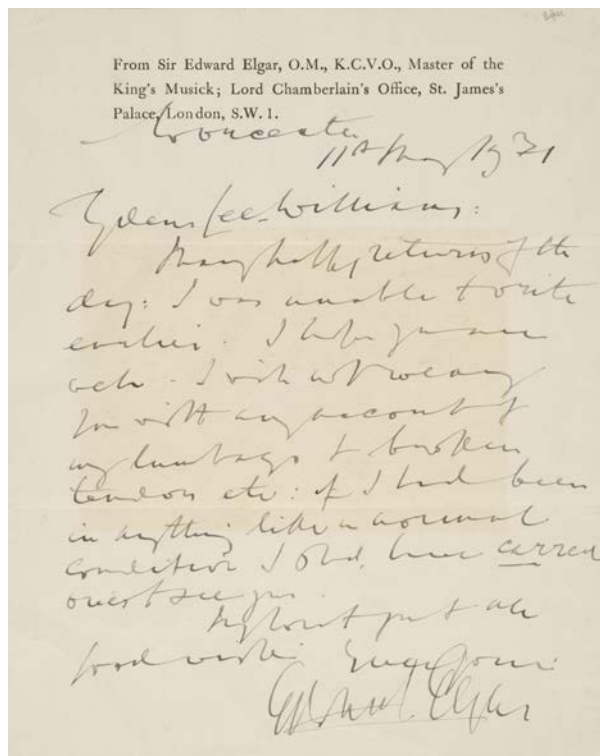 From Sir Edward Elgar, O.M., K.C.V.O., Master of the
King's Musick; Lord Chamberlain's Office, St. James's
Palace, London, S.W. 1.
Worcester
11th May 1931
My dear Lee-Williams:
Many happy returns of the
day: I was unable to write
earlier. I hope you are
well. I will not weary
you with any account of
my lumbago & broken
tendon etc: if I had been
in anything like a normal
condition I shd. have carred
over to see you.
My love to you & all
good wishes Ever yours
Edward Elgar